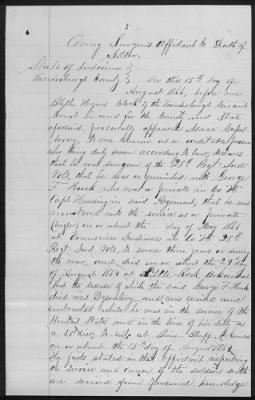 2
Army Surgeon's Affidavit to Death of
Soldier.
State of Indiana }
Vanderburgh County } On this 15th day of
August 1866, before me
Blythe Hynes Clerk of the Vanderburgh Circuit
Court in and for the County and State
aforesaid, personally appeared Isaac
to me known as a creditable person
who being duly sworn according to law, declares
that he was surgeon of the Regt
Vols, that he was acquainted with George
F Huck who was a private in Co
Capt in said Regiment, that he was
mustered into the service as a private
on or about the day of May 1861
at Indiana in Co
Regt Ind Vols, to serve three years or during
the war, and died on or about the 29th
of August 1864 at Little Rock Arkansas
that the disease of which the said George F Huck
died was Dysentery and was
contracted while he was in the service of the
United States and in the line of his duty as
a soldier, at Pine Bluff Arkansas
on or about the 15th day of August 1864
the facts stated in this affidavit respecting
the service and cause of the soldier's death
are derived from personal knowledge